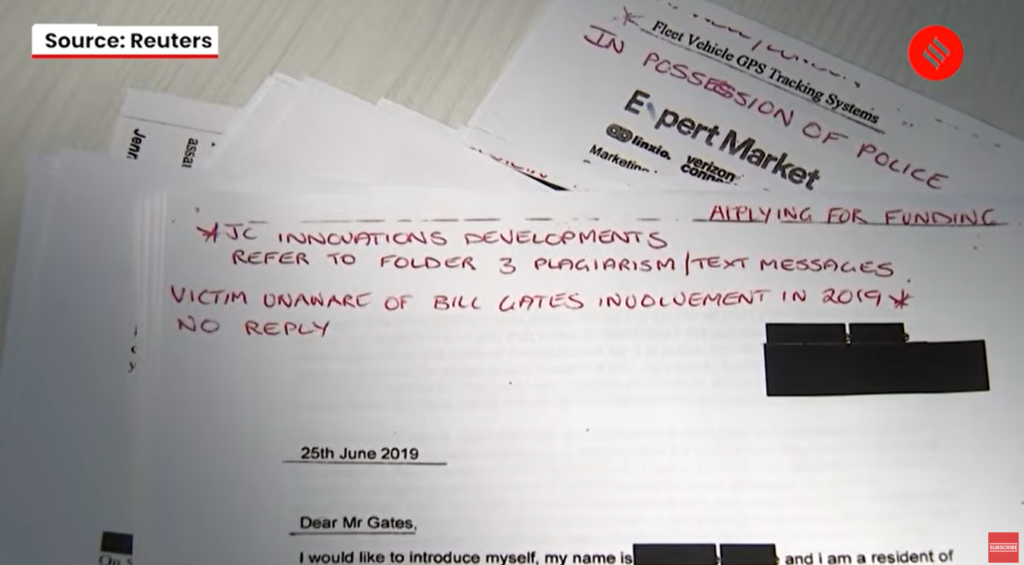 Source: Reuters
Fleet Vehicle GPS Tracking Systems
IN POSSESSION OF POLICE
Expert Market
linxio.
verizon
conne
Marketin
Jenr
assai
APPLYING FOR FUNDING
*JC INNOVATIONS DEVELOPMENTS
REFER TO FOLDER 3 PLAGIARISM/TEXT MESSAGES.
VICTIM UNAWARE OF BILL GATES INVOLVEMENT IN 2019*
NO REPLY
25th June 2019
Dear Mr Gates,
I would like to introduce myself, my name is and i am a resident of
SUBSCRIBE